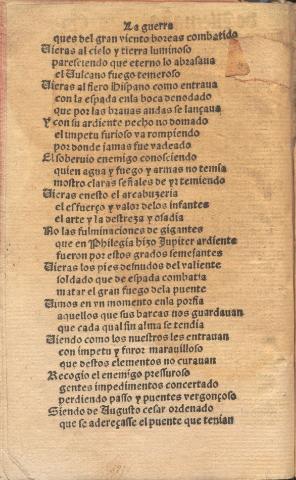 La guerra
ques del gran viento boreas combatido
Uieras al cielo y tierra luminoso
paresciendo que eterno lo abrasaua
el Uulcano fuego temeroso
Uieras al fiero Hispano como entraua
con la espada enla boca denodado
que por las brauas andas se lançaua
Y con su ardiente pecho no domado
el impetu furioso va rompiendo
por donde jamas fue vadeado
El soberuio enemigo conosciendo
quien agua y fuego y armas no temia
mostro claras señales de yr temiendo
Uieras enesto el arcabuzeria
el esfuerço y valor delos infantes
el arte y la destreza y osadia
No las fulminaciones de gigantes
que en Phlegia hizo Jupiter ardiente
fueron por estos grados semejantes
Uieras los pies desnudos del valiente
soldado que de espada combatia
matar el gran fuego dela puente
Uimos en vn momento enla porfia
aquellos que sus barcas nos guardauan
que cada qual sin alma se tendia
Uiendo como los nuestros les entrauan
con impetu y furor marauilloso
que destos elementos no curauan
Recogio el enemigo pressuroso
gentes impedimentos concertado
perdiendo passo y puentes vergonçoso
Siendo de Augusto cesar ordenado
que se adereçasse el puente que tenian